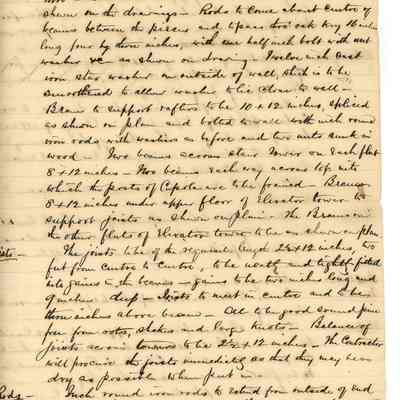 shown on the drawings - Rods to come about centre of
beams between the pieces and to pass thro' oak key 16 inches
long four by three inches, with one half inch bolt with nut
washer &c as shown on drawing - Twelve inch cast
iron star washer on outside of wall, which is to be
smoothened to allow washer to lie close to wall -
Beams to support rafters to be 10 x 12 inches, spliced
as shown on plan and bolted to wall with inch round
iron rods with washers as before and two nuts sunk in
wood - Two beams across stair tower on each flat
8 x 12 inches - Two beams each way across top into
which the posts of Cupola are to be framed - Beams
8 x 12 inches under upper floor of Elevator tower to
support joists as shown on plan - The Beams in
the other flats of Elevator tower to be as shown on plan
Joists -
The joists to be of the requisite length 2½ x 12 inches, two
feet from centre to centre, to be neatly and tightly fitted
into gains in the beams - gains to be two inches long and
9 inches deep - Joists to meet in centre and to be
three inches above beam - All to be good sound pine
free from rots, shakes and large knots - Balance of
joists across towers to be 2½ x 12 inches - The Contractor
will procure the joists immediately so that they may be as
dry as possible when put in -
Rods -
Inch round iron rods to extend from outside of end